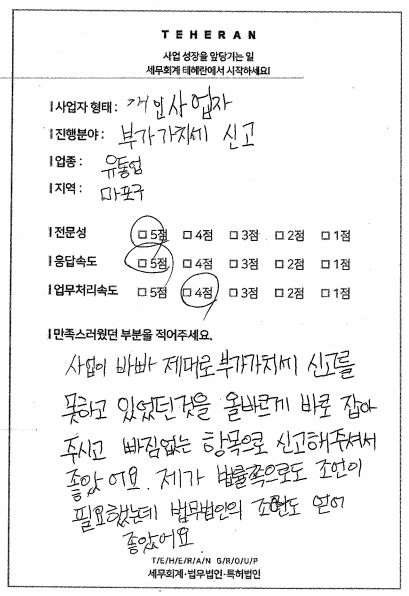 TEHERAN
사업 성장을 앞당기는 일
세무회계 테헤란에서 시작하세요!
사업자 형태 : 개인사업자
진행분야 : 부가가치세 신고
업종 : 유통업
지역 : 마포구
전문성 □ 5점 □ 4점 □ 3점 □ 2점 □ 1점
응답속도 □ 5점 □ 4점 □ 3점 □ 2점 □ 1점
업무처리속도 □ 5점 □ 4점 □ 3점 □ 2점 □ 1점
만족스러웠던 부분을 적어주세요.
사업이 바빠 제대로 부가가치세 신고를
못하고 있었던것을 올바르게 바로 잡아
주시고 빠짐없는 항목으로 신고해주셔서
좋았어요. 제가 법률쪽으로도 조언이
필요했는데 법무법인의 조언도 얻어
좋았어요
T/E/H/E/R/A/N G/R/O/U/P
세무회계·법무법인·특허법인